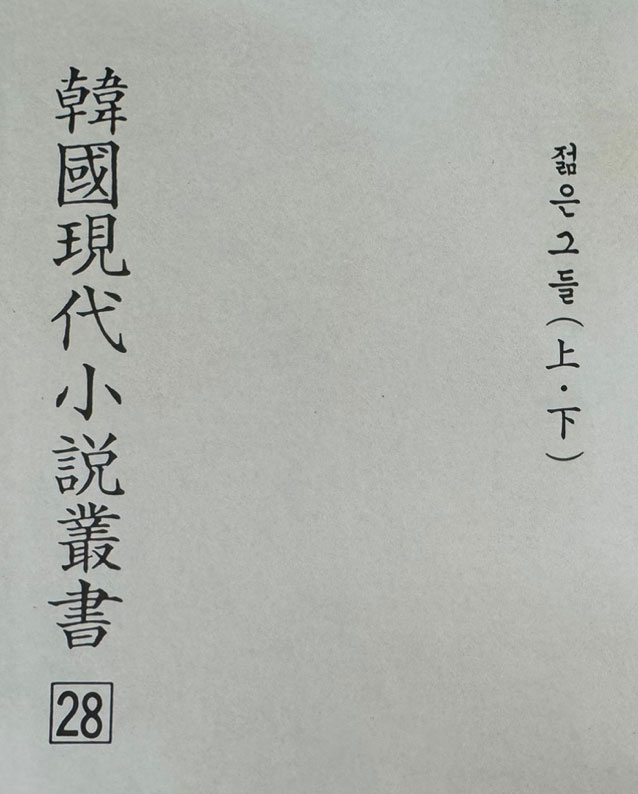 젊은그들(上·下)
韓國現代小説叢書
28